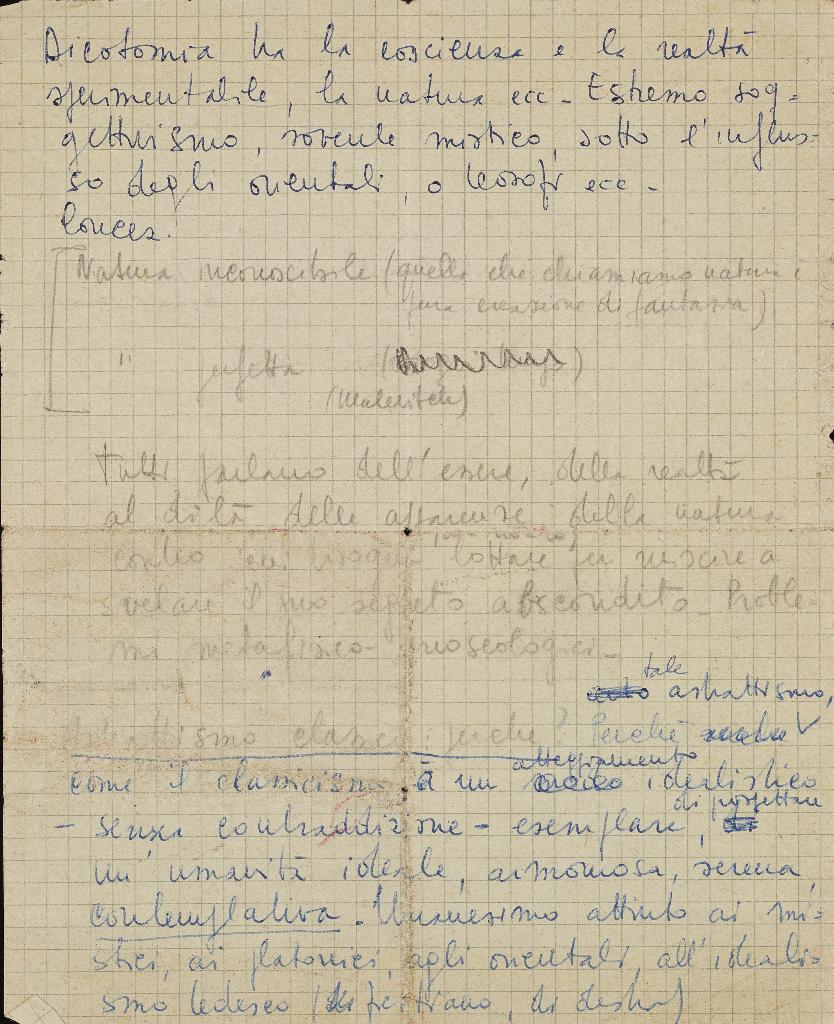 Dicotomia tra la coscienza e la realtà
sperimentabile, la natura ecc - Estremo sog=
gettivismo, sovente mistico, sotto l'influs-
so degli orientali, o teosofi ecc -
Natura inconoscibile (quella che chiamiamo natura è
una creazione di fantasia)
" perfetta
(Malevitch)
Tutti parlano dell'essere, della realtà
al di là delle apparenze, della natura
contro cui bisogna lottare per riuscire a
svelare il suo segreto abscondito - Proble-
mi metafisico - gnoseologici -
tale
astrattismo,
Astrattismo classico: perché? Perché
atteggiamento
come il classicismo è un idealistico
di progettare
- senza contraddizione - esemplare,
un'umanità ideale, armoniosa, serena,
contemplativa. Umanesimo attinto ai mi=
stici, ai platonici, agli orientali, all'ideali=
smo tedesco